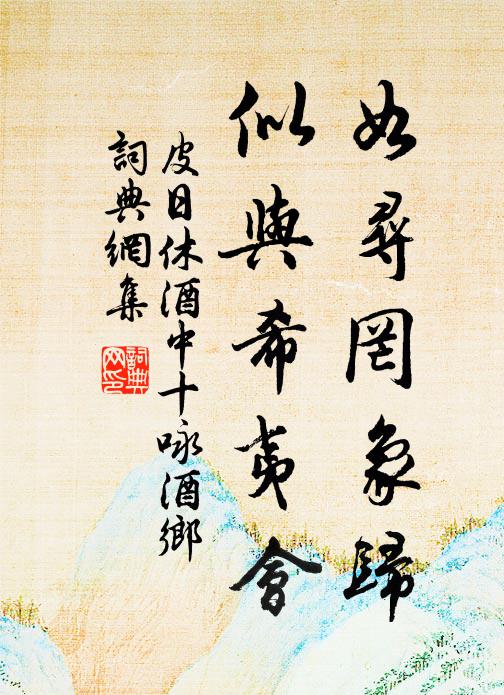 如尋罔象歸
似與希夷會
皮日休酒中十咏酒鄉
詞典網集
詞典网印